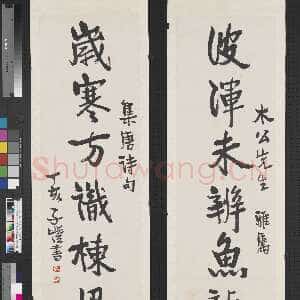 波渾未辦魚
木公先生 雅屬
歲寒方識棟
集唐詩句
丁亥 子愷書
Shufawang.cn